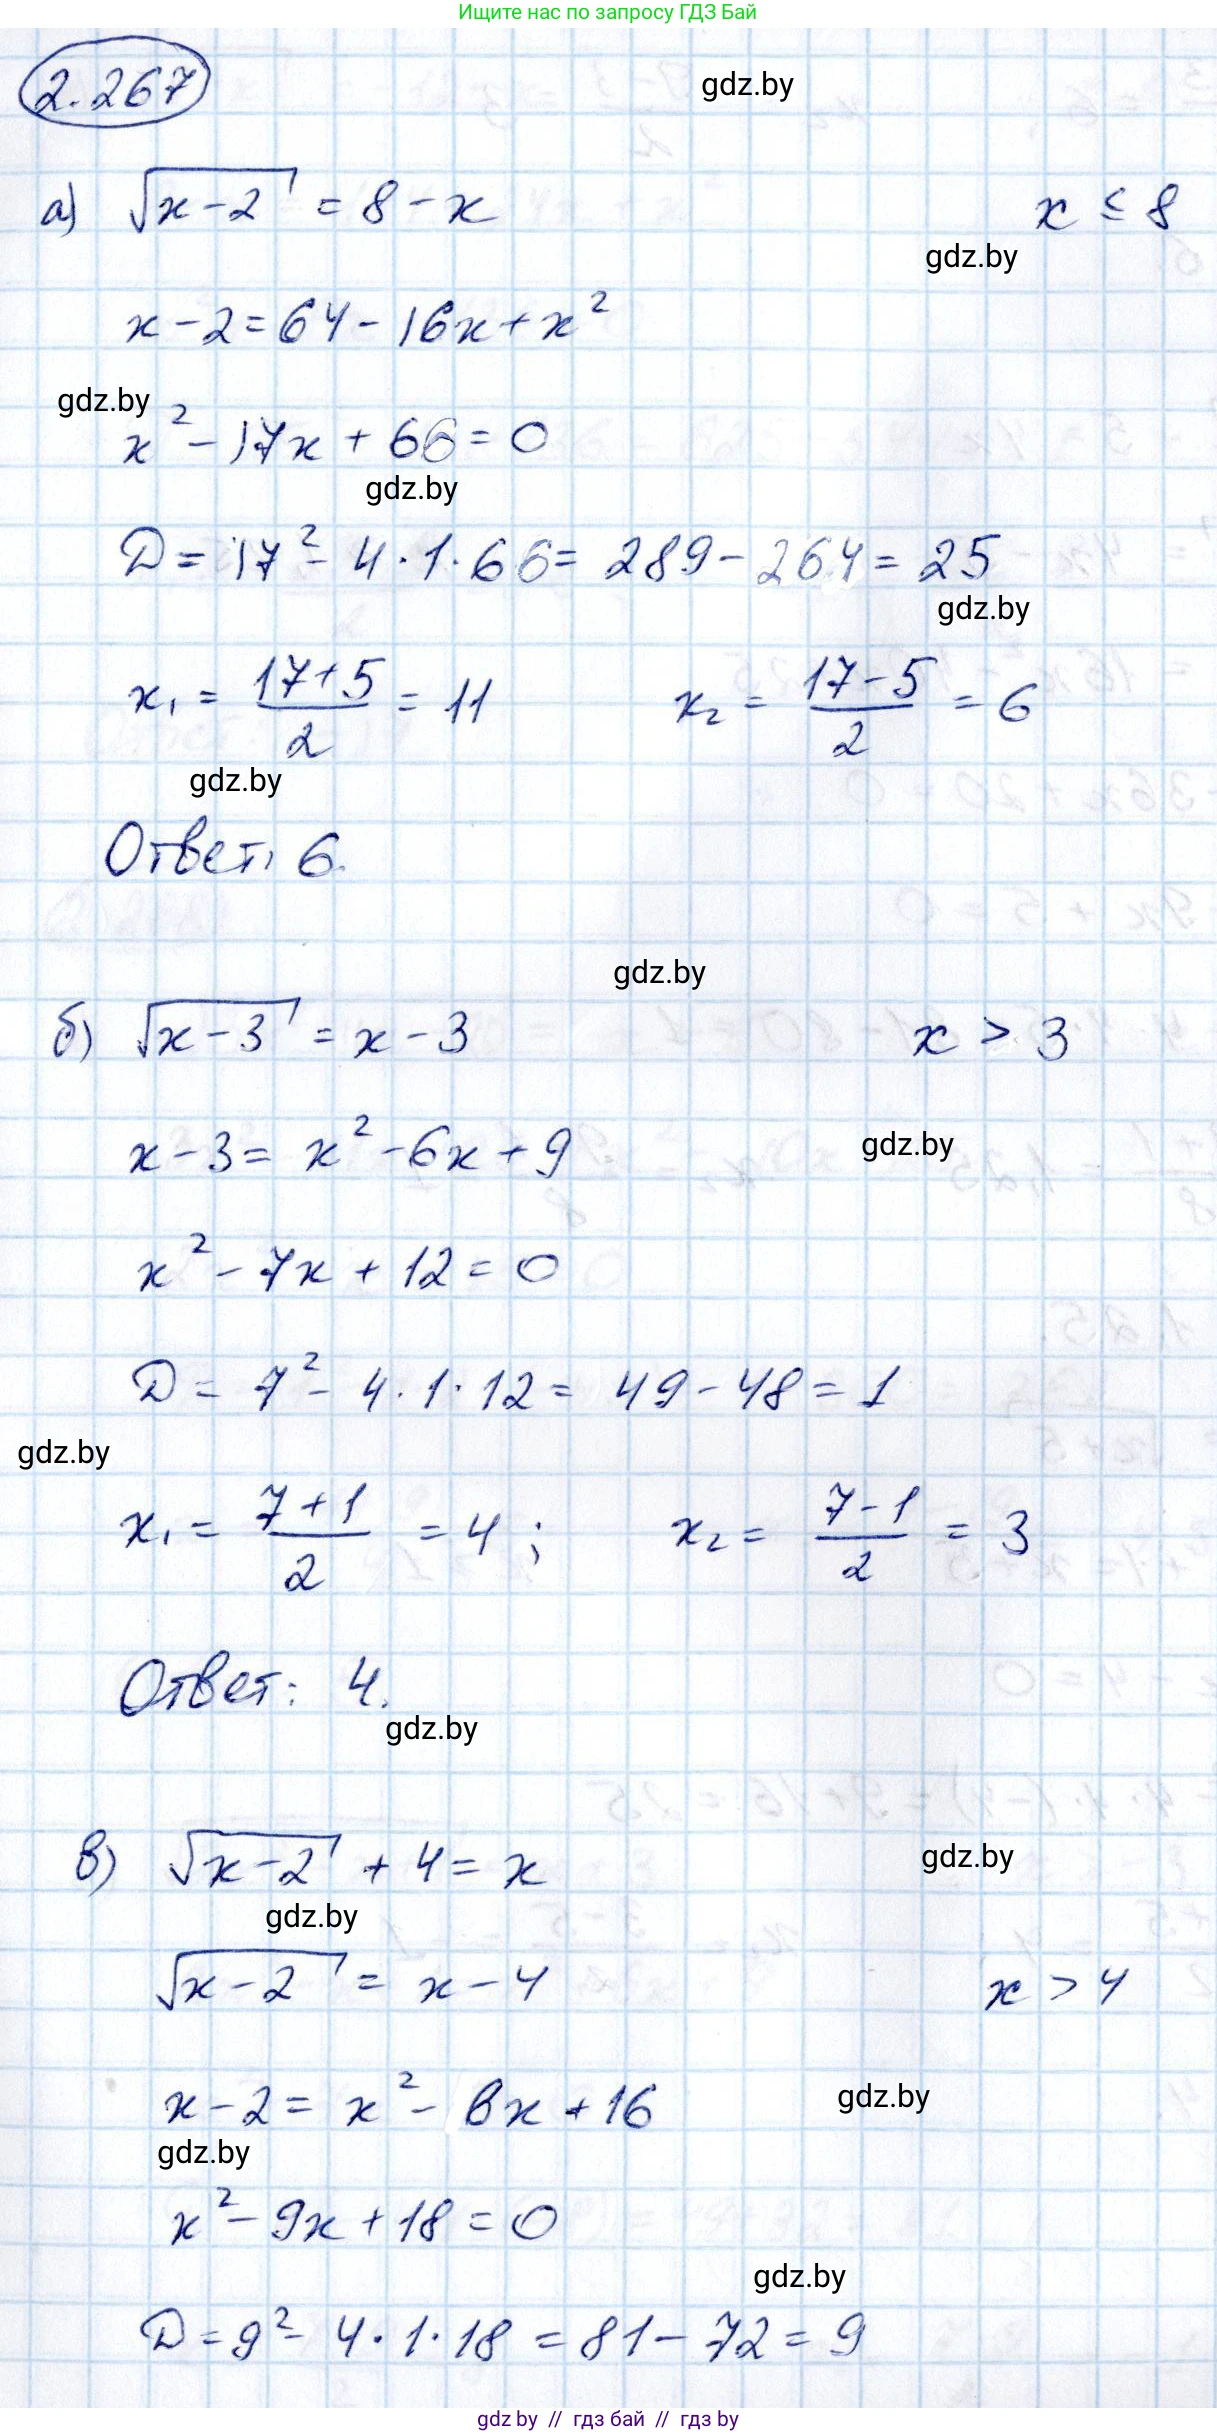 Ищите нас по запросу ГДЗ Бай
2.267
gdz.by
а) √x-2 = 8 - x
x ≤ 8
gdz.by
x - 2 = 64 - 16x + x²
gdz.by
x² - 17x + 66 = 0
gdz.by
D = 17² - 4 · 1 · 66 = 289 - 264 = 25
gdz.by
x₁ = (17+5)/2 = 11 x₂ = (17-5)/2 = 6
gdz.by
Ответ: 6.
gdz.by
б) √x-3 = x - 3
x > 3
x - 3 = x² - 6x + 9
gdz.by
x² - 7x + 12 = 0
D = 7² - 4 · 1 · 12 = 49 - 48 = 1
gdz.by
x₁ = (7+1)/2 = 4 ; x₂ = (7-1)/2 = 3
Ответ: 4.
gdz.by
в) √x-2 + 4 = x
gdz.by
gdz.by
√x-2 = x - 4
x > 4
x - 2 = x² - 8x + 16
gdz.by
gdz.by
x² - 9x + 18 = 0
gdz.by
D = 9² - 4 · 1 · 18 = 81 - 72 = 9
gdz by // гдз бай // gdz by